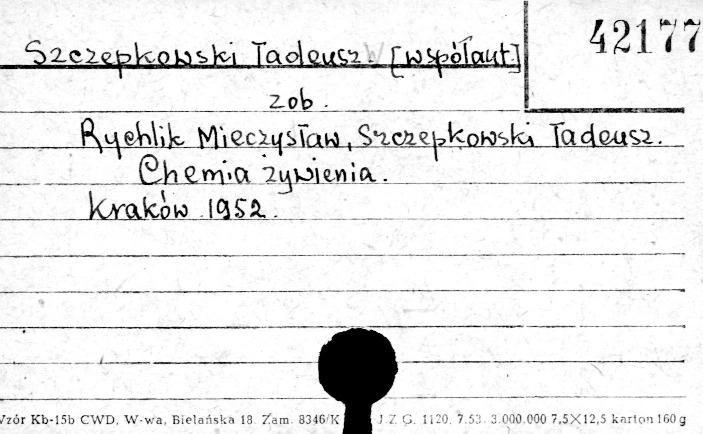 42177
Szczepkowski Tadeusz. [współaut.]
zob.
Rychlik Mieczysław, Szczepkowski Tadeusz.
Chemia żywienia.
Kraków 1952.
Wzór Kb-15b CWD, W-wa, Bielańska 18. Zam. 8346/K J.Z.G. 1120. 7.53. 3.000.000 7,5×12,5 karton 160 g